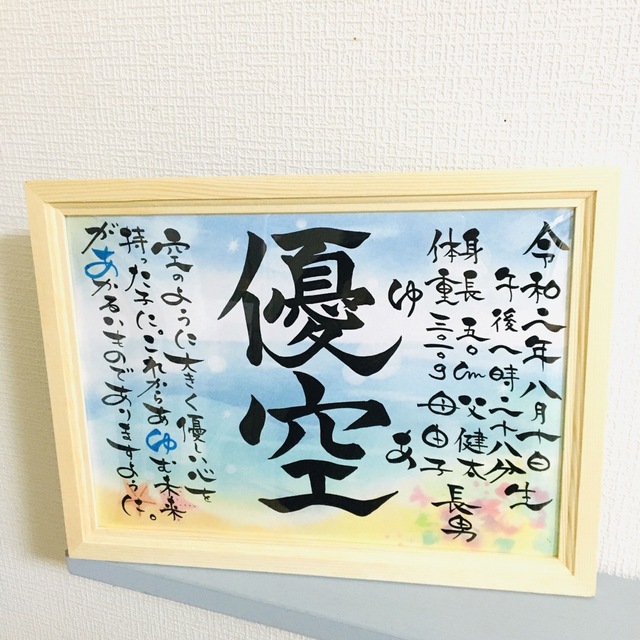 令和二年八月十日生
午後八時二十八分
身長 五〇cm 父 健太 長男
体重 三〇二〇g 母 由子
ゆ あ
優空
空のように大きく優しい心を
持った子に。これからあゆむ未来
があかるいものでありますように。